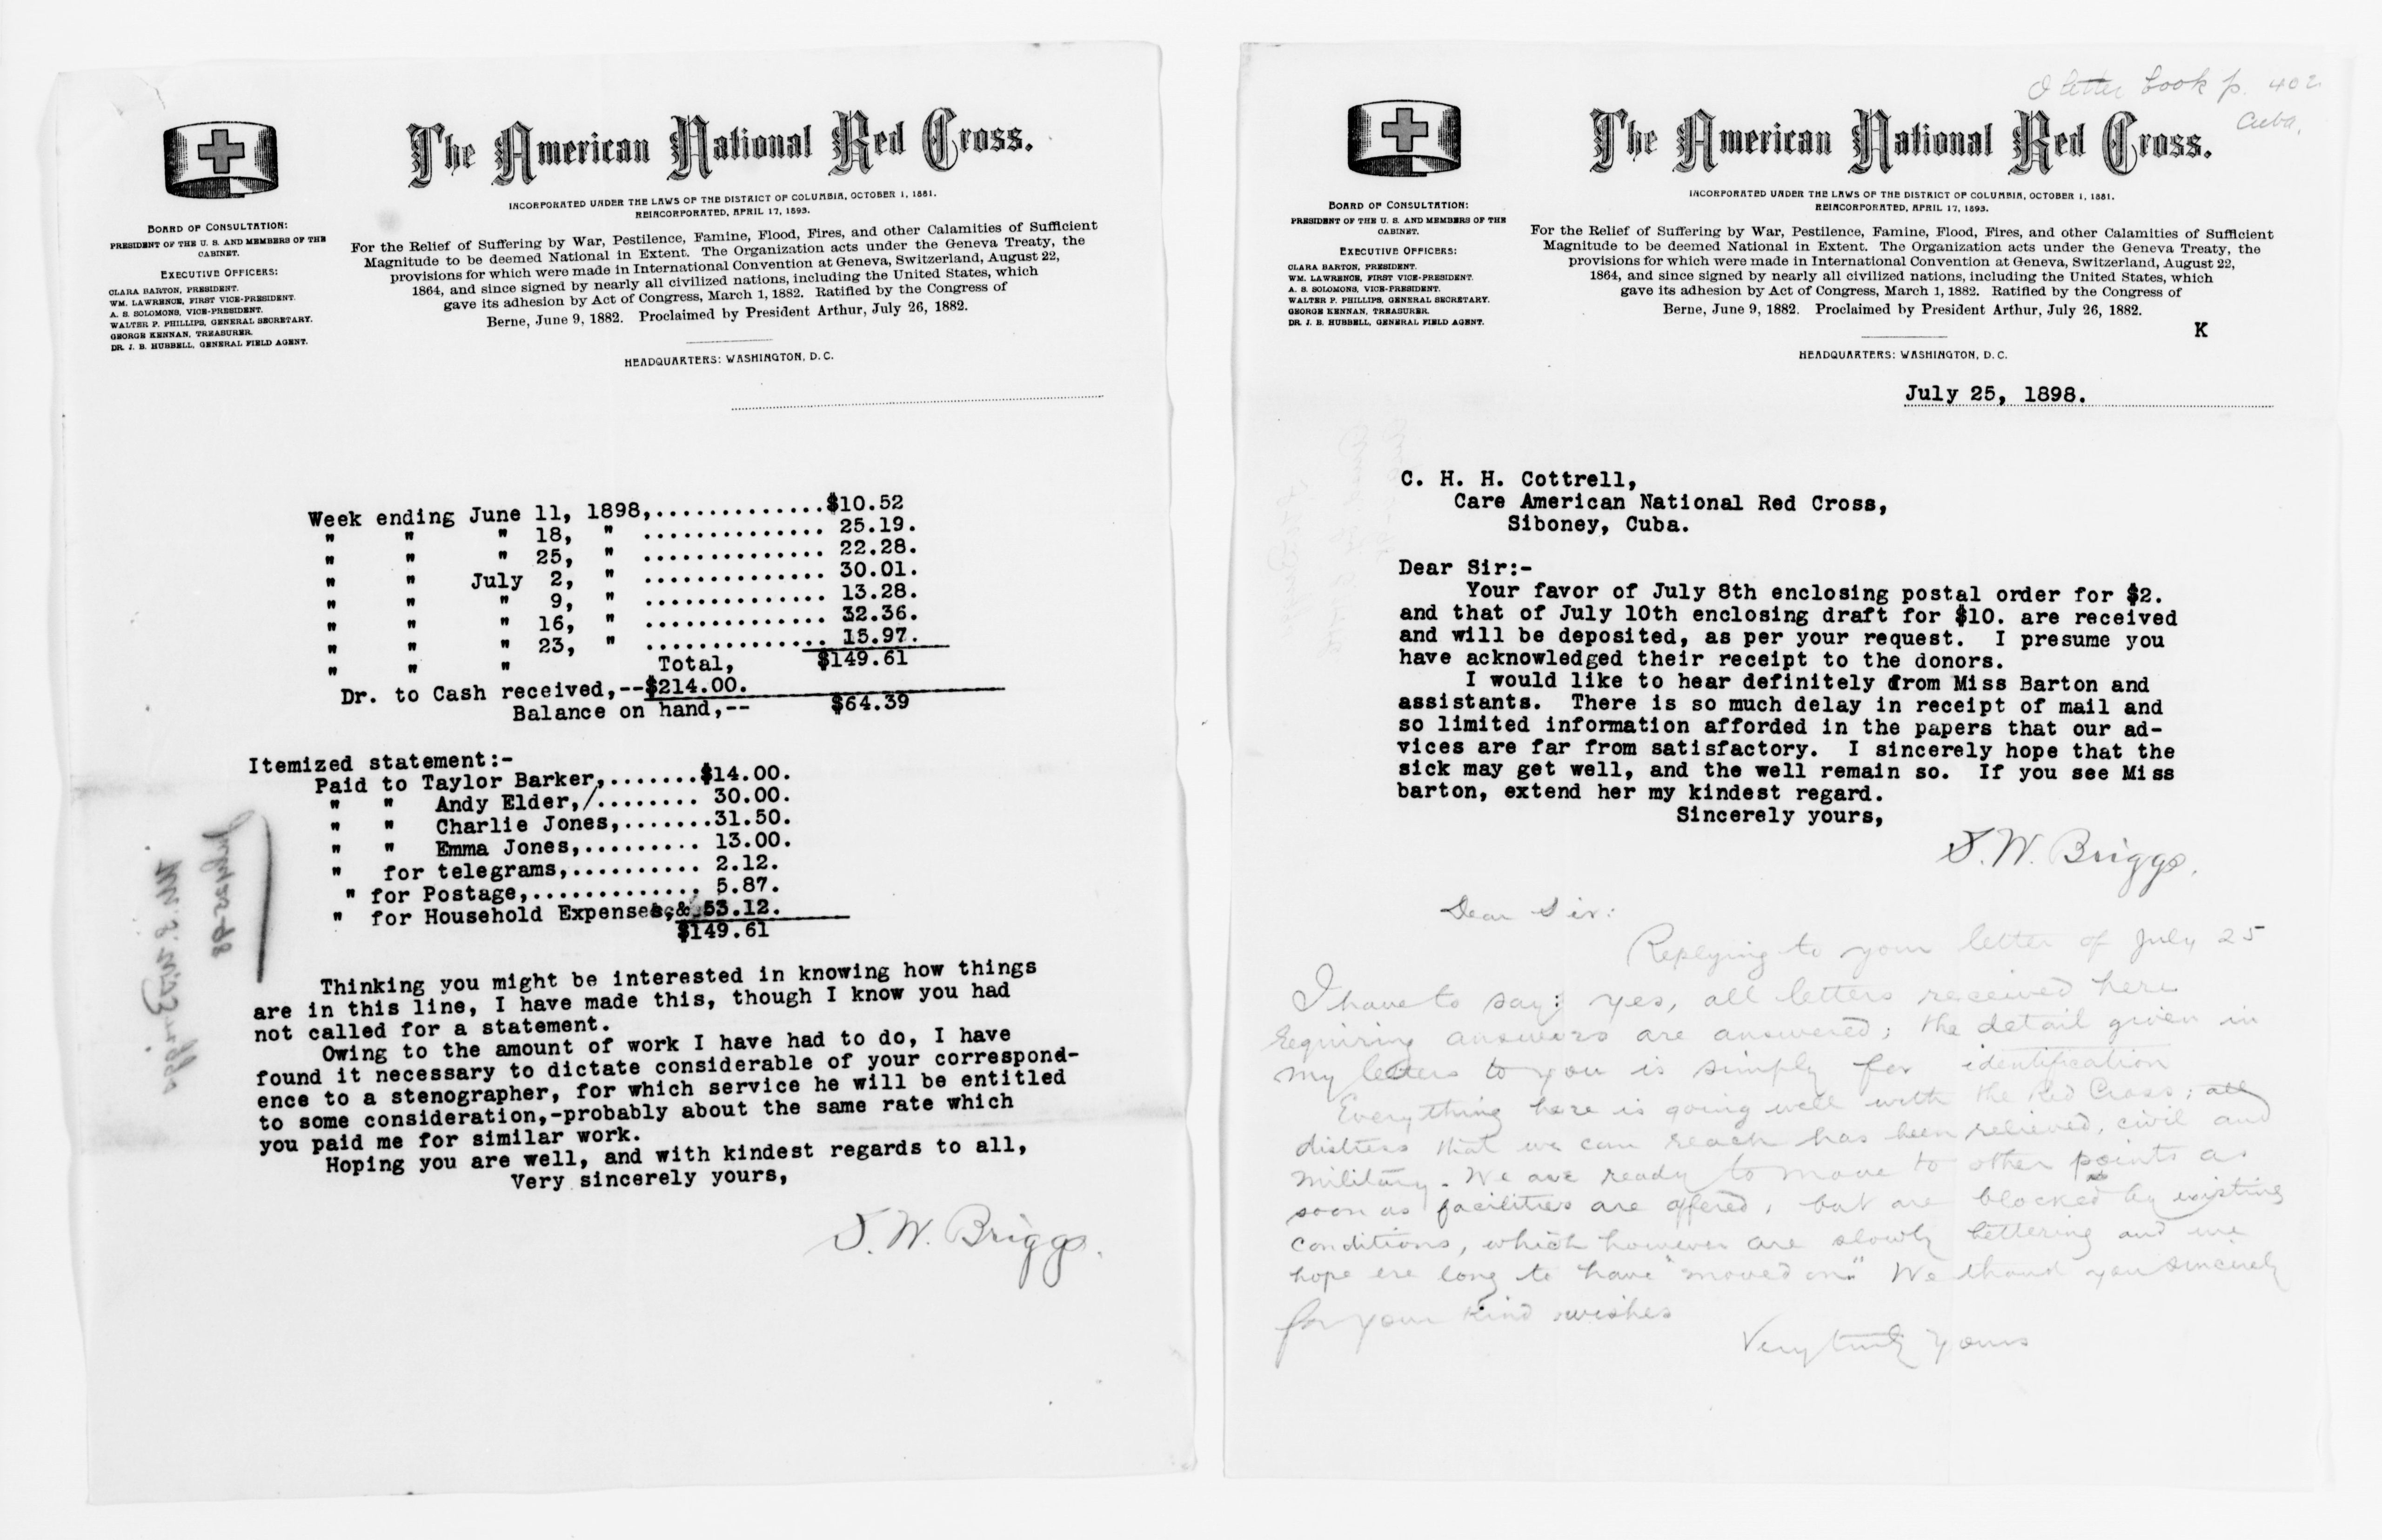 The American National Red Cross.
INCORPORATED UNDER THE LAWS OF THE DISTRICT OF COLUMBIA, OCTOBER 1, 1881.
REINCORPORATED, APRIL 17, 1893.
BOARD OF CONSULTATION:
PRESIDENT OF THE U. S. AND MEMBERS OF THE
CABINET.
EXECUTIVE OFFICERS:
CLARA BARTON, PRESIDENT.
WM. LAWRENCE, FIRST VICE-PRESIDENT.
A. S. SOLOMONS, VICE-PRESIDENT.
WALTER P. PHILLIPS, GENERAL SECRETARY.
GEORGE KENNAN, TREASURER.
DR. J. B. HUBBELL, GENERAL FIELD AGENT.
For the Relief of Suffering by War, Pestilence, Famine, Flood, Fires, and other Calamities of Sufficient
Magnitude to be deemed National in Extent. The Organization acts under the Geneva Treaty, the
provisions for which were made in International Convention at Geneva, Switzerland, August 22,
1864, and since signed by nearly all civilized nations, including the United States, which
gave its adhesion by Act of Congress, March 1, 1882. Ratified by the Congress of
Berne, June 9, 1882. Proclaimed by President Arthur, July 26, 1882.
HEADQUARTERS: WASHINGTON, D. C.
Week ending June 11, 1898,..............$10.52
" " " 18, " ............... 25.19.
" " " 25, " ............... 22.28.
" " July 2, " ............... 30.01.
" " " 9, " ............... 13.28.
" " " 16, " ............... 32.36.
" " " 23, " ............... 15.97.
" " " Total, $149.61
Dr. to Cash received,--$214.00.
Balance on hand,-- $64.39
Itemized statement:-
Paid to Taylor Barker,.......$14.00.
" " Andy Elder,/........ 30.00.
" " Charlie Jones,.......31.50.
" " Emma Jones,......... 13.00.
" for telegrams,.......... 2.12.
" for Postage,.............. 5.87.
" for Household Expenses,&. 53.12.
$149.61
Thinking you might be interested in knowing how things
are in this line, I have made this, though I know you had
not called for a statement.
Owing to the amount of work I have had to do, I have
found it necessary to dictate considerable of your correspond-
ence to a stenographer, for which service he will be entitled
to some consideration,-probably about the same rate which
you paid me for similar work.
Hoping you are well, and with kindest regards to all,
Very sincerely yours,
S. W. Briggs.
July 25-98
S. W. Briggs
letter book p. 402
Cuba.
The American National Red Cross.
INCORPORATED UNDER THE LAWS OF THE DISTRICT OF COLUMBIA, OCTOBER 1, 1881.
REINCORPORATED, APRIL 17, 1893.
BOARD OF CONSULTATION:
PRESIDENT OF THE U. S. AND MEMBERS OF THE
CABINET.
EXECUTIVE OFFICERS:
CLARA BARTON, PRESIDENT.
WM. LAWRENCE, FIRST VICE-PRESIDENT.
A. S. SOLOMONS, VICE-PRESIDENT.
WALTER P. PHILLIPS, GENERAL SECRETARY.
GEORGE KENNAN, TREASURER.
DR. J. B. HUBBELL, GENERAL FIELD AGENT.
For the Relief of Suffering by War, Pestilence, Famine, Flood, Fires, and other Calamities of Sufficient
Magnitude to be deemed National in Extent. The Organization acts under the Geneva Treaty, the
provisions for which were made in International Convention at Geneva, Switzerland, August 22,
1864, and since signed by nearly all civilized nations, including the United States, which
gave its adhesion by Act of Congress, March 1, 1882. Ratified by the Congress of
Berne, June 9, 1882. Proclaimed by President Arthur, July 26, 1882.
K
HEADQUARTERS: WASHINGTON, D. C.
July 25, 1898.
C. H. H. Cottrell,
Care American National Red Cross,
Siboney, Cuba.
Dear Sir:-
Your favor of July 8th enclosing postal order for $2.
and that of July 10th enclosing draft for $10. are received
and will be deposited, as per your request. I presume you
have acknowledged their receipt to the donors.
I would like to hear definitely from Miss Barton and
assistants. There is so much delay in receipt of mail and
so limited information afforded in the papers that our ad-
vices are far from satisfactory. I sincerely hope that the
sick may get well, and the well remain so. If you see Miss
barton, extend her my kindest regard.
Sincerely yours,
S. W. Briggs.
Dear Sir:
Replying to your letter of July 25
I have to say: yes, all letters received here
requiring answers are answered; the detail given in
my letters to you is simply for identification
Everything here is going well with the Red Cross; all
distress that we can reach has been relieved, civil and
military. We are ready to move to other points as
soon as facilities are offered, but are blocked by existing
conditions, which however are slowly bettering and we
hope ere long to have "moved on." We thank you sincerely
for your kind wishes
Very truly yours